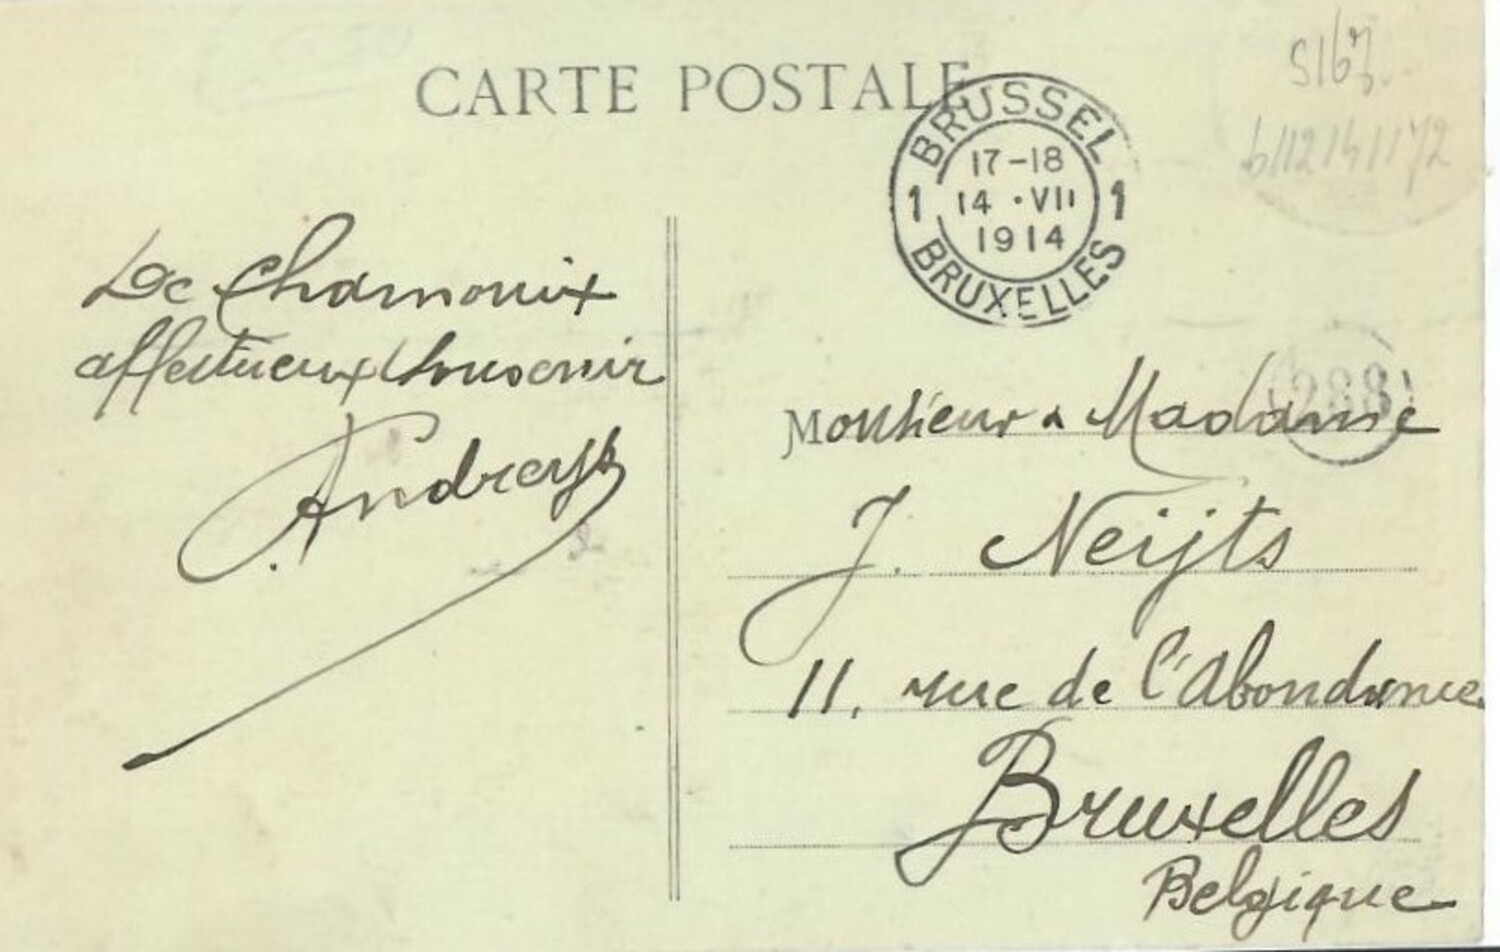 CARTE POSTALE
BRUSSEL
17-18
1 14 · VII 1
1914
BRUXELLES
De Chamonix
affectueux souvenir
288
Monsieur & Madame
J. Neijts
11, rue de l'Abondance
Bruxelles
Belgique